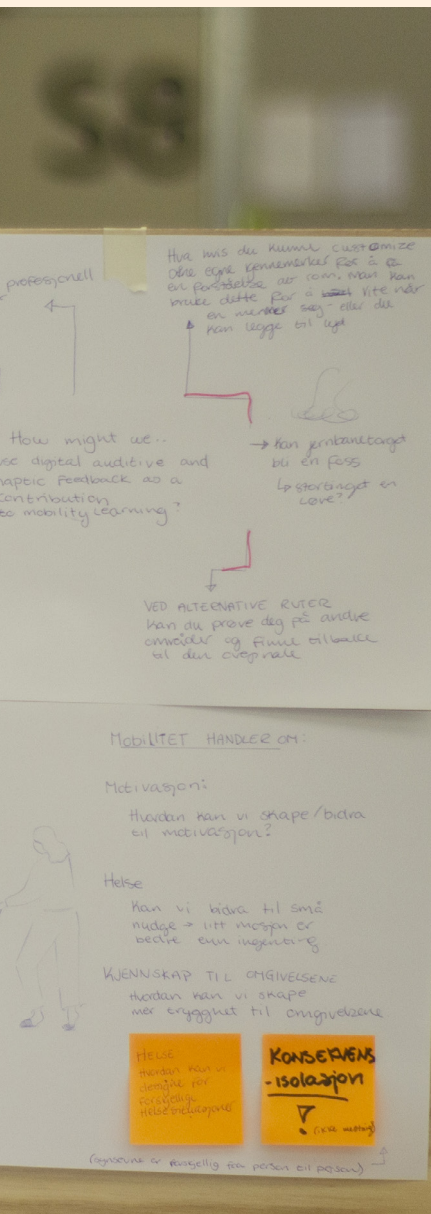 S8
profesjonell
Hva hvis du kunne customize
dine egne kjennemerker for å få
en forståelse av rom. Man kan
bruke dette for å vite når
en nærmer seg - eller du
kan legge til lyd
How might we..
use digital auditive and
haptic feedback as a
contribution
to mobility learning?
→ Kan jernbanetorget
bli en foss
↳ stortinget en
løve?
VED ALTERNATIVE RUTER
kan du prøve deg på andre
områder og finne tilbake
til den originale
MOBILITET HANDLER OM:
Motivasjon:
Hvordan kan vi skape/bidra
til motivasjon?
Helse
Kan vi bidra til små
nudge → litt mosjon er
bedre enn ingenting
KJENNSKAP TIL OMGIVELSENE
Hvordan kan vi skape
mer trygghet til omgivelsene
HELSE
Hvordan kan vi
designe for
forskjellige
helsesituasjoner
KONSEKVENS
-isolasjon
!
(synsevne er forskjellig fra person til person)